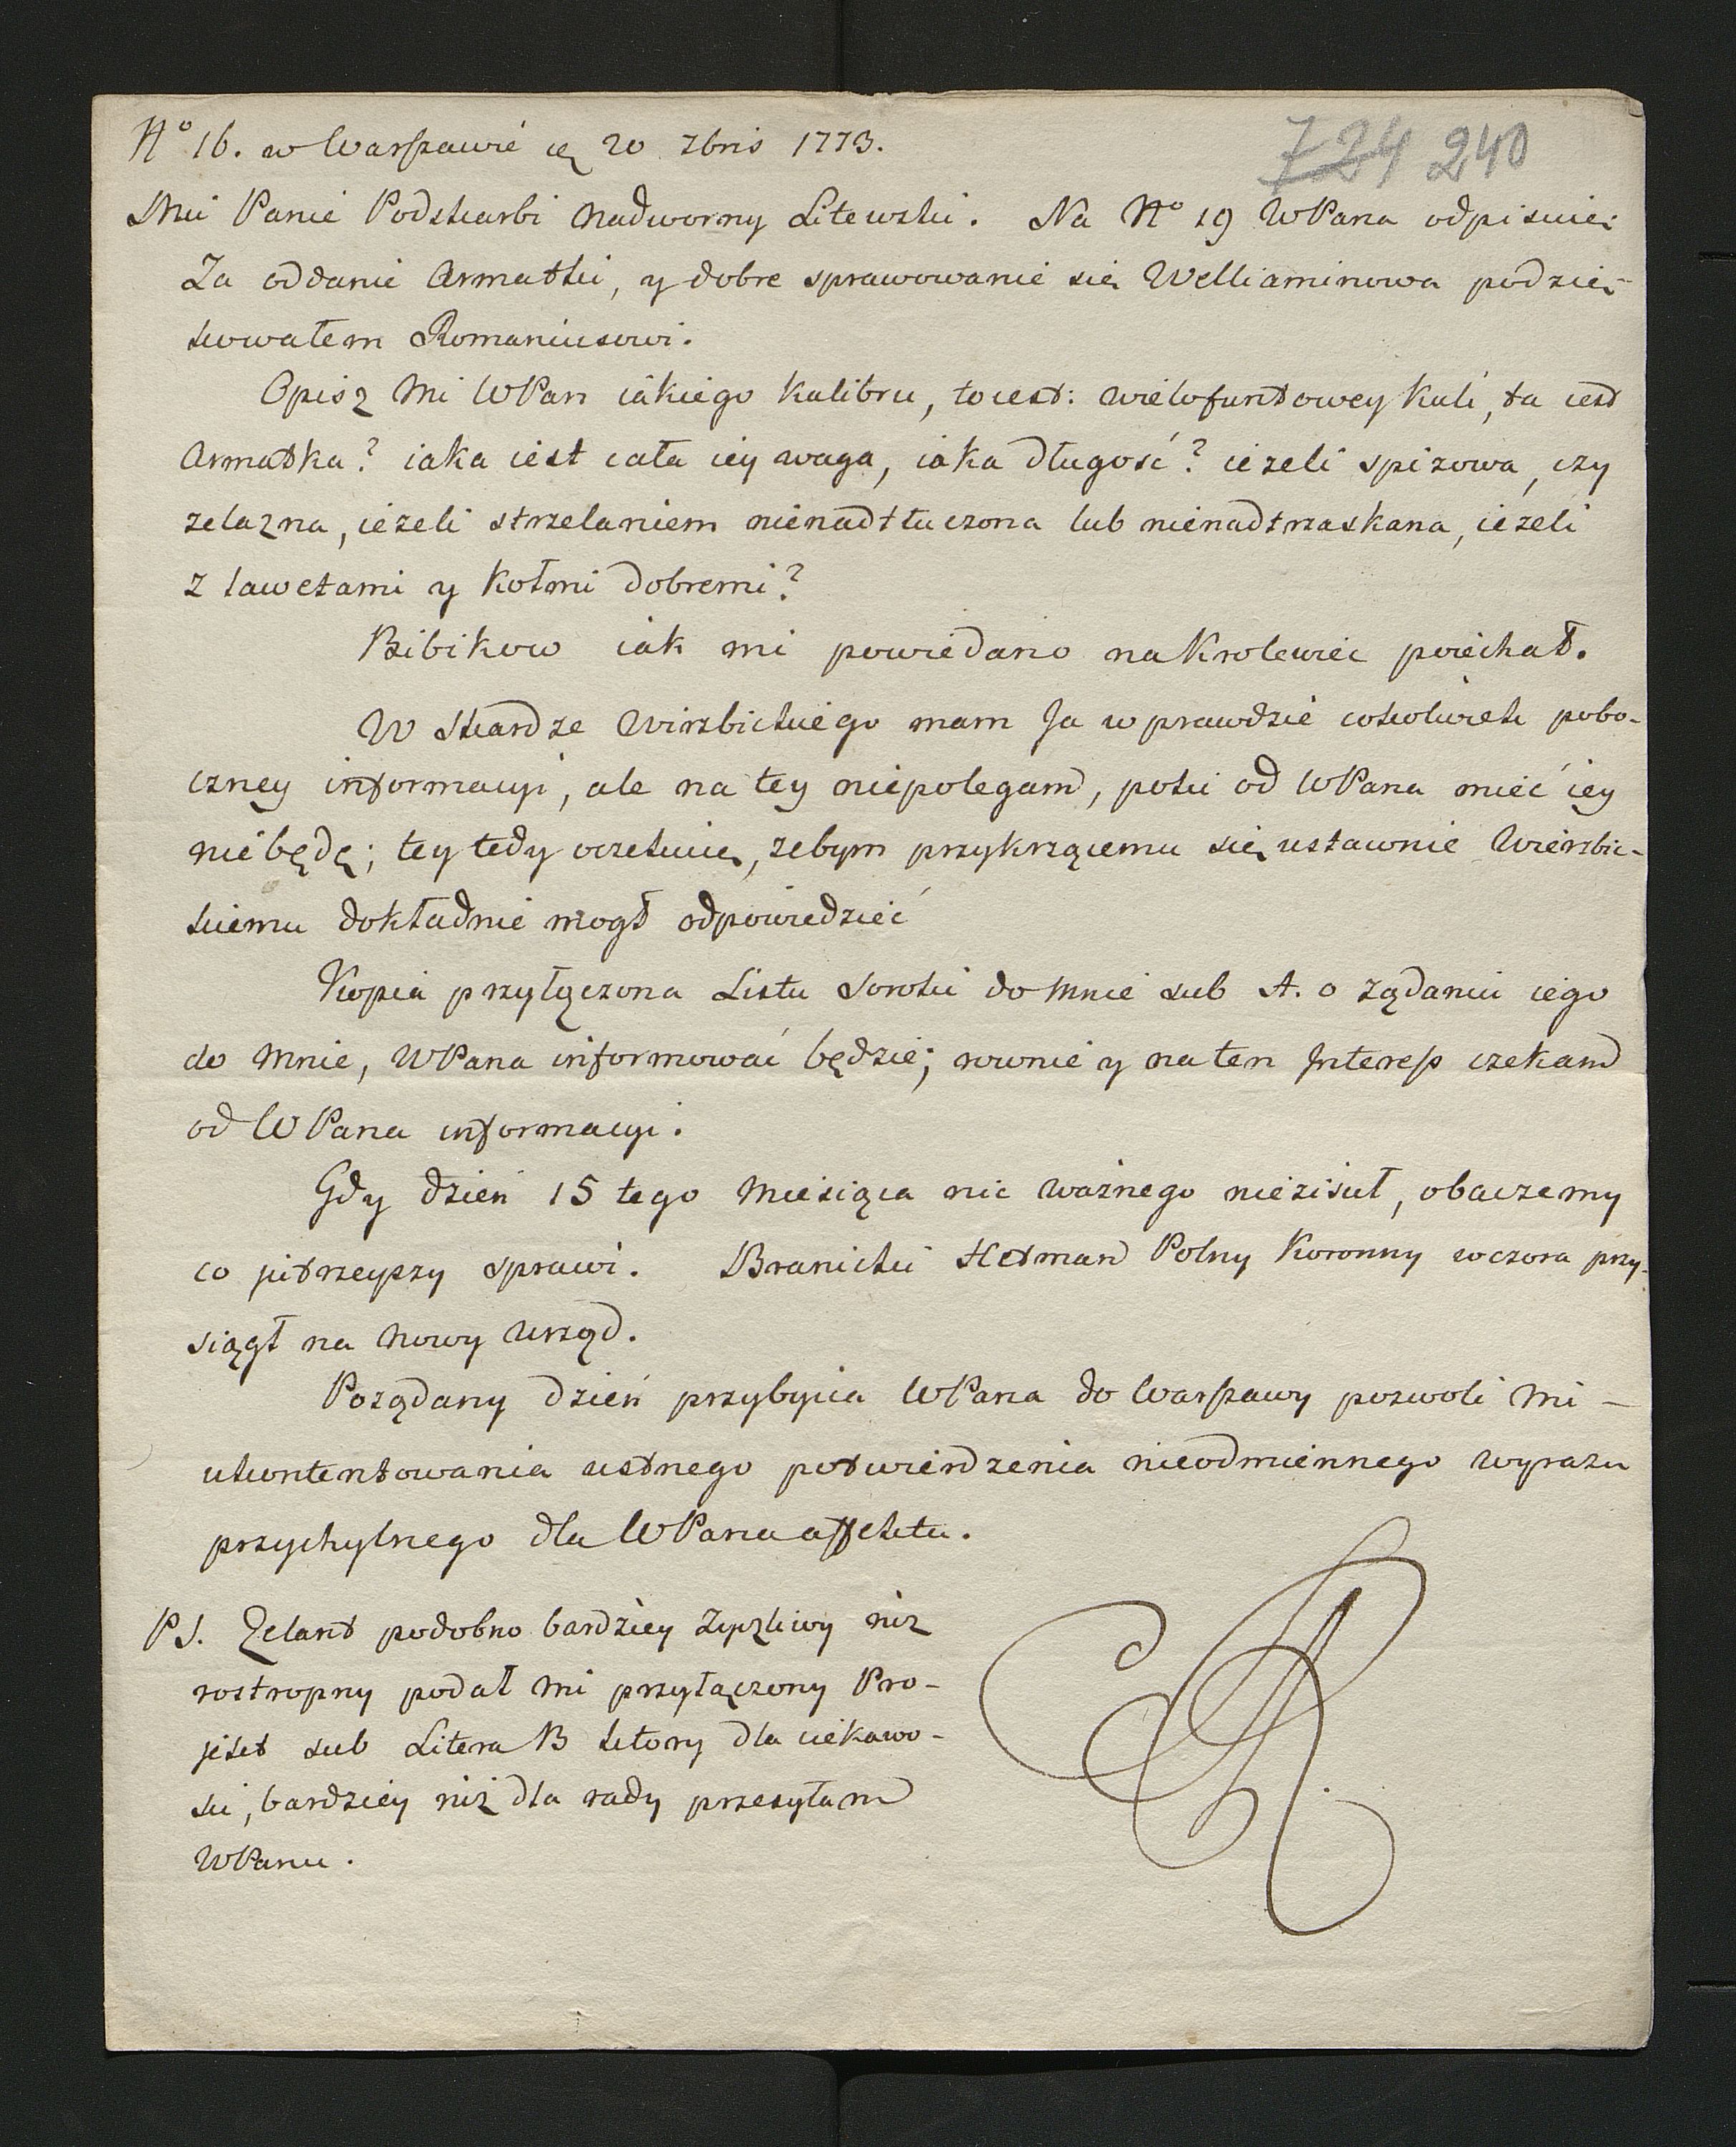 724 240
N° 16. w Warszawie ię 20 7bris 1773.
Mci Panie Podskarbi Nadworny Litewski. Na N° 19 WPana odpisuię:
Za oddanie Armatki, y dobre sprawowanie się Welliaminowa podzię-
kowałem Romaniusowi.
Opisz mi WPan iakiego kalibru, toiest: wielofuntowey kuli, ta iest
Armatka? iaka iest cała iey waga, iaka długość? ieżeli spiżowa, czy
żelazna, ieżeli strzelaniem nienadtłuczona lub nienadtrzaskana, ieżeli
z lawetami y kołmi dobremi?
Bibikow iak mi powiedano na Krolewiec poiechał.
W Skardze Wirzbickiego mam Ja w prawdzie cokolwiek pobo-
czney informacyi, ale na tey niepolegam, poki od WPana mieć iey
niebędę; tey tedy oczekuię, żebym przykrzącemu się ustawnie Wierzbic-
kiemu dokładnie mogł odpowiedzieć
Kopia przyłączona Listu Soroki do mnie sub A. o żądaniu iego
do mnie, WPana informować będzie; rownie y na ten Interess czekam
od WPana informacyi.
Gdy dzień 15 tego Miesiąca nic ważnego nieziścił, obaczemy
co jutrzeyszy sprawi. Branicki Hetman Polny Koronny wczora przy-
siągł na nowy Urząd.
Pożądany dzień przybycia WPana do Warszawy pozwoli mi -
ukontentowania ustnego potwierdzenia nieodmiennego wyrazu
przychylnego dla WPana affektu.
PS. Zelant podobno bardziey życzliwy niż
rostropny podał mi przyłączony Pro-
jekt sub Litera B ktory dla ciekawo-
ści, bardziey niż dla rady przesyłam
WPanu.